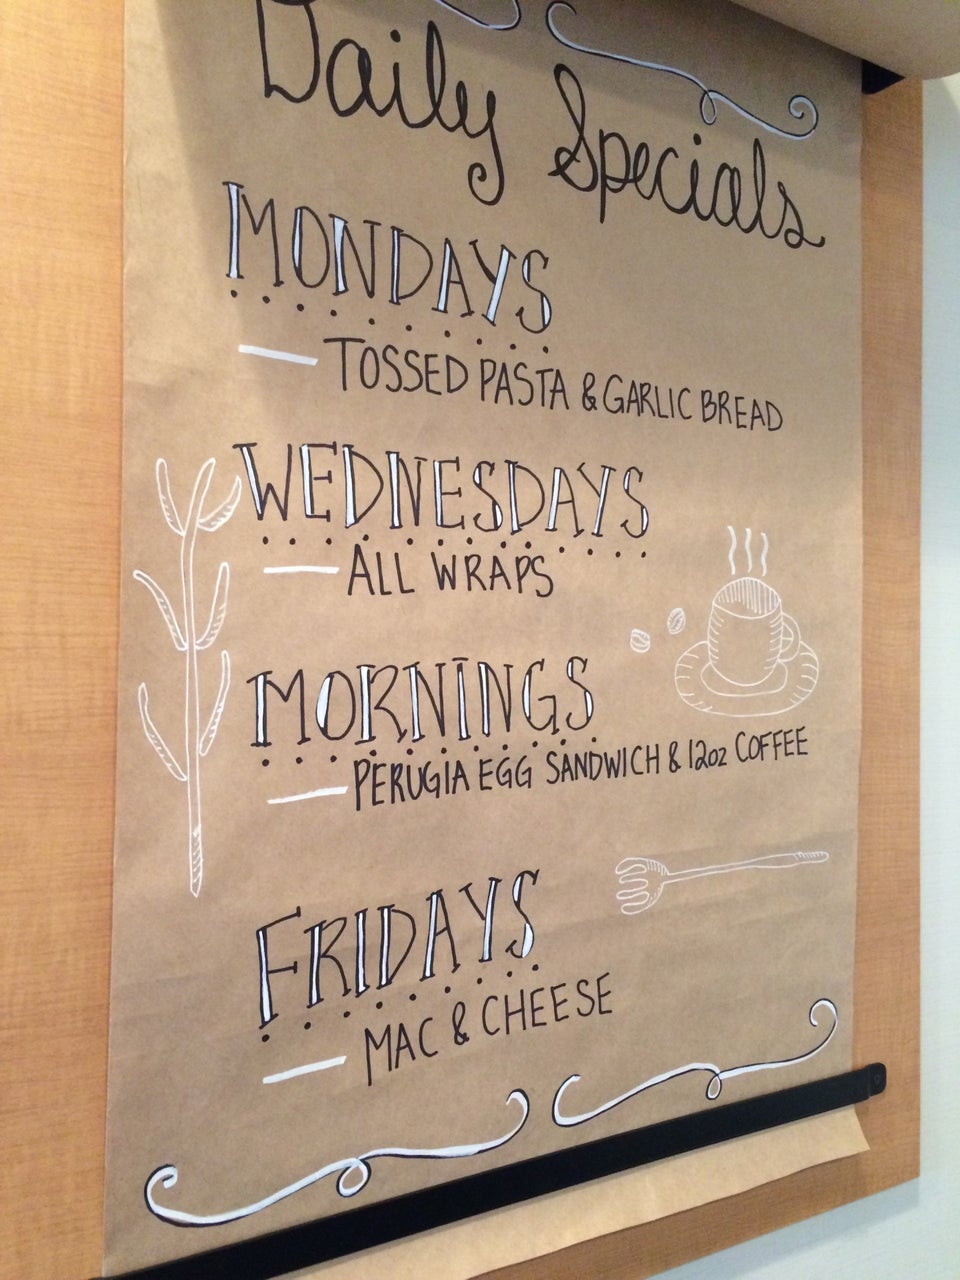 Daily Specials
MONDAYS
TOSSED PASTA & GARLIC BREAD
WEDNESDAYS
ALL WRAPS
MORNINGS
PERUGIA EGG SANDWICH & 12oz COFFEE
FRIDAYS
MAC & CHEESE